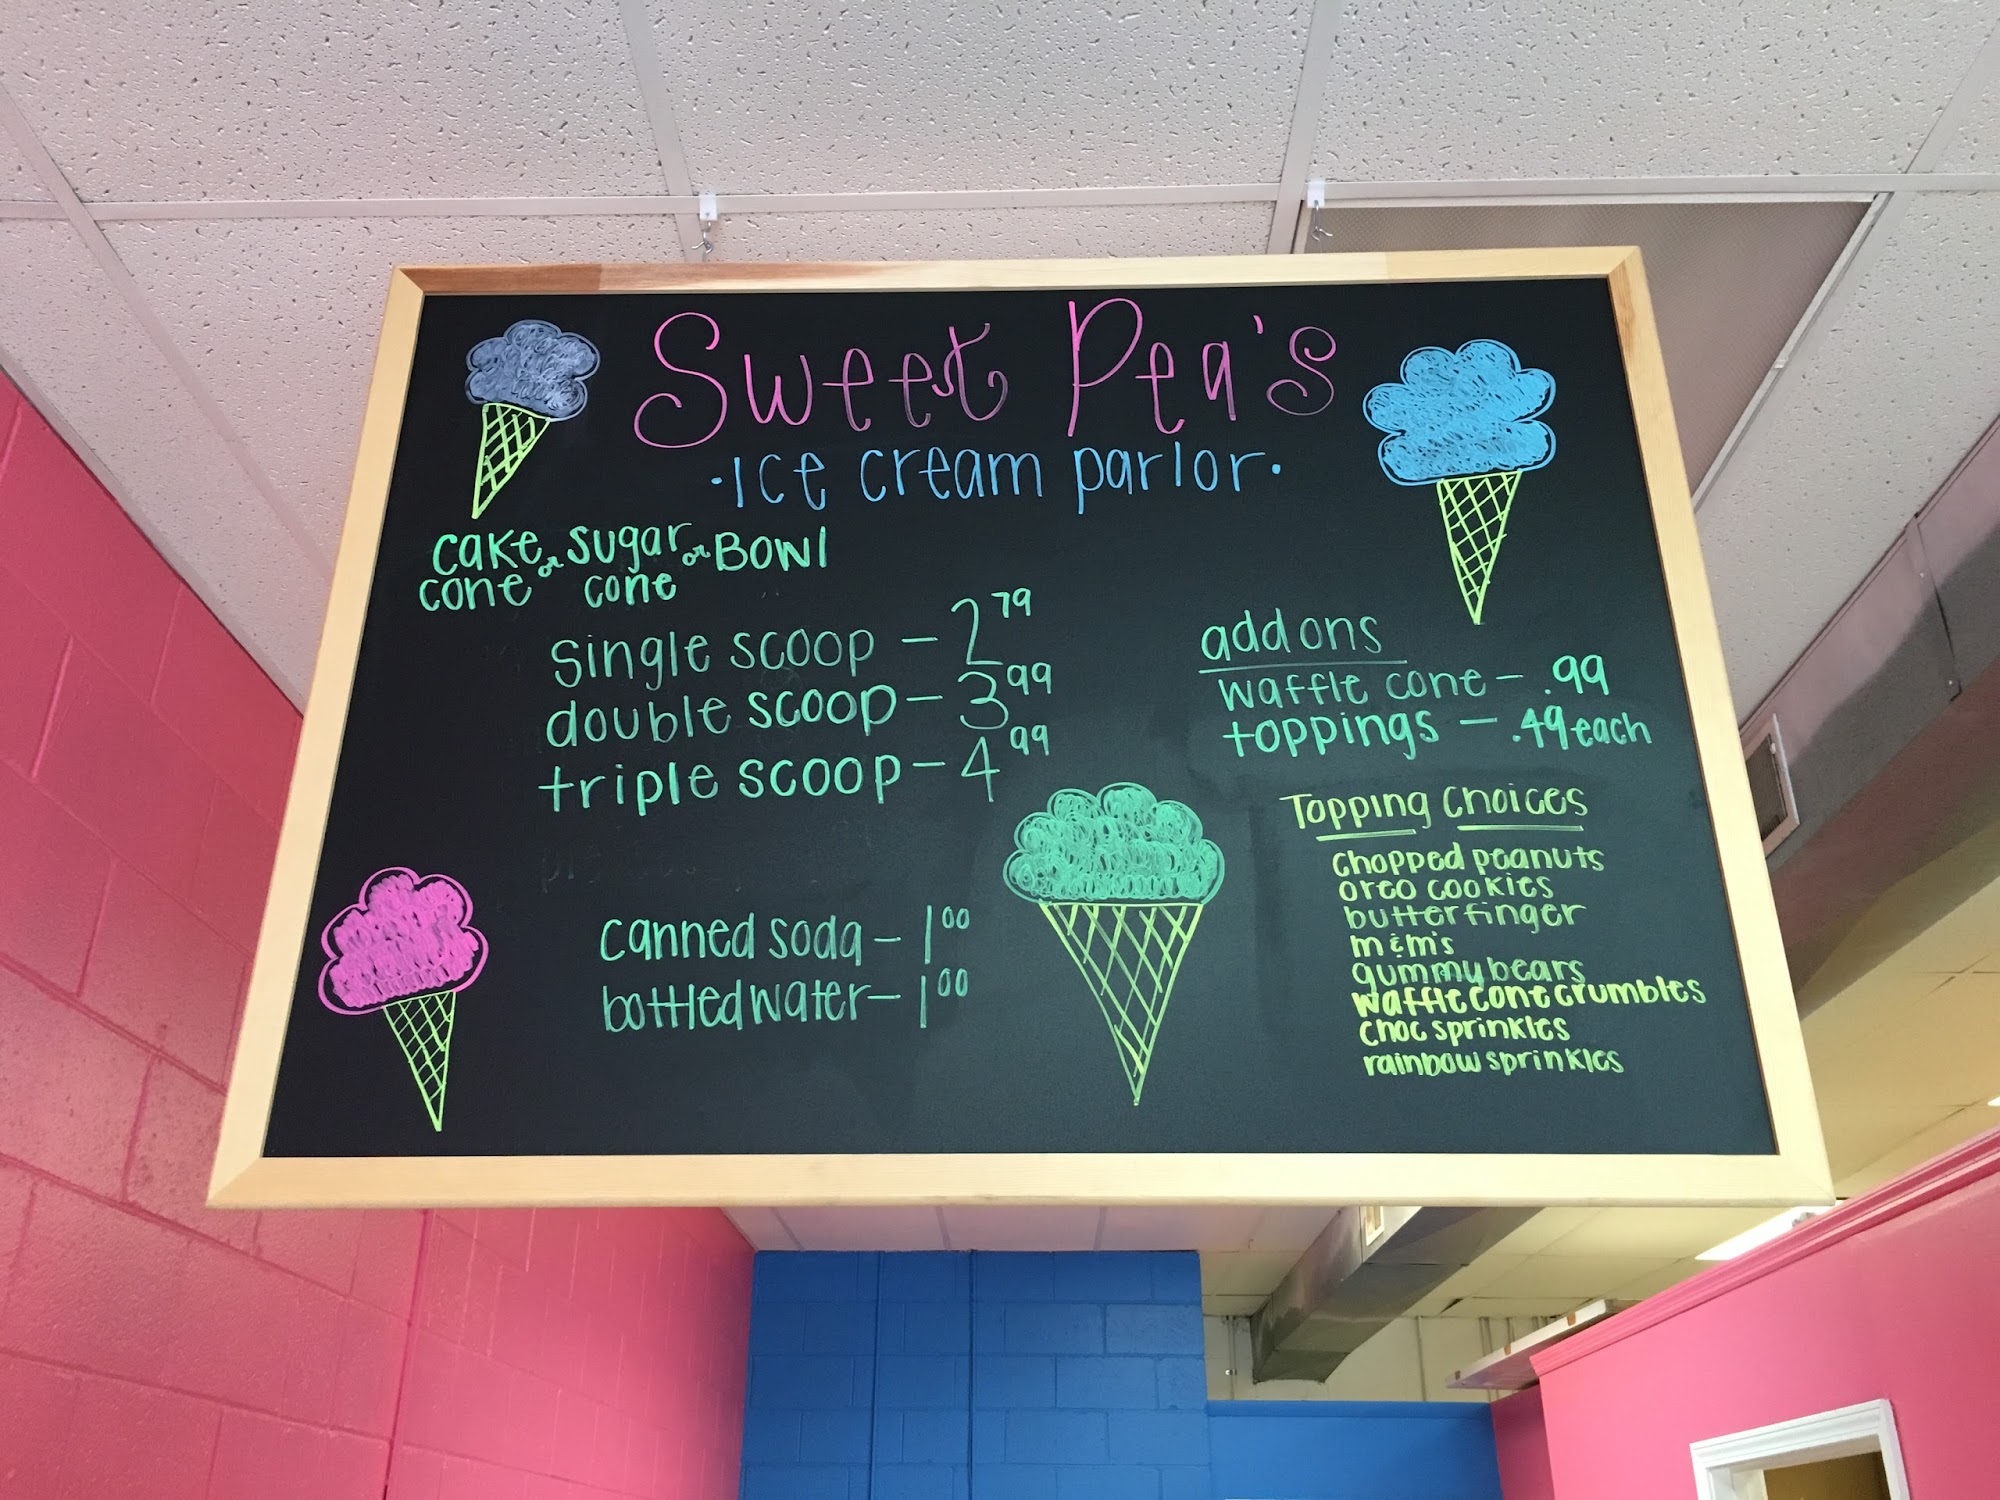 Sweet Pea's
·Ice cream parlor·
cake or sugar or BOWl
cone cone
single scoop - 2 79
double scoop - 3 99
triple scoop - 4 99
canned soda - 1 00
bottled water - 1 00
add ons
waffle cone - .99
toppings - .49 each
Topping Choices
chopped peanuts
oreo cookies
butterfinger
m & m's
gummy bears
waffle cone crumbles
choc sprinkles
rainbow sprinkles